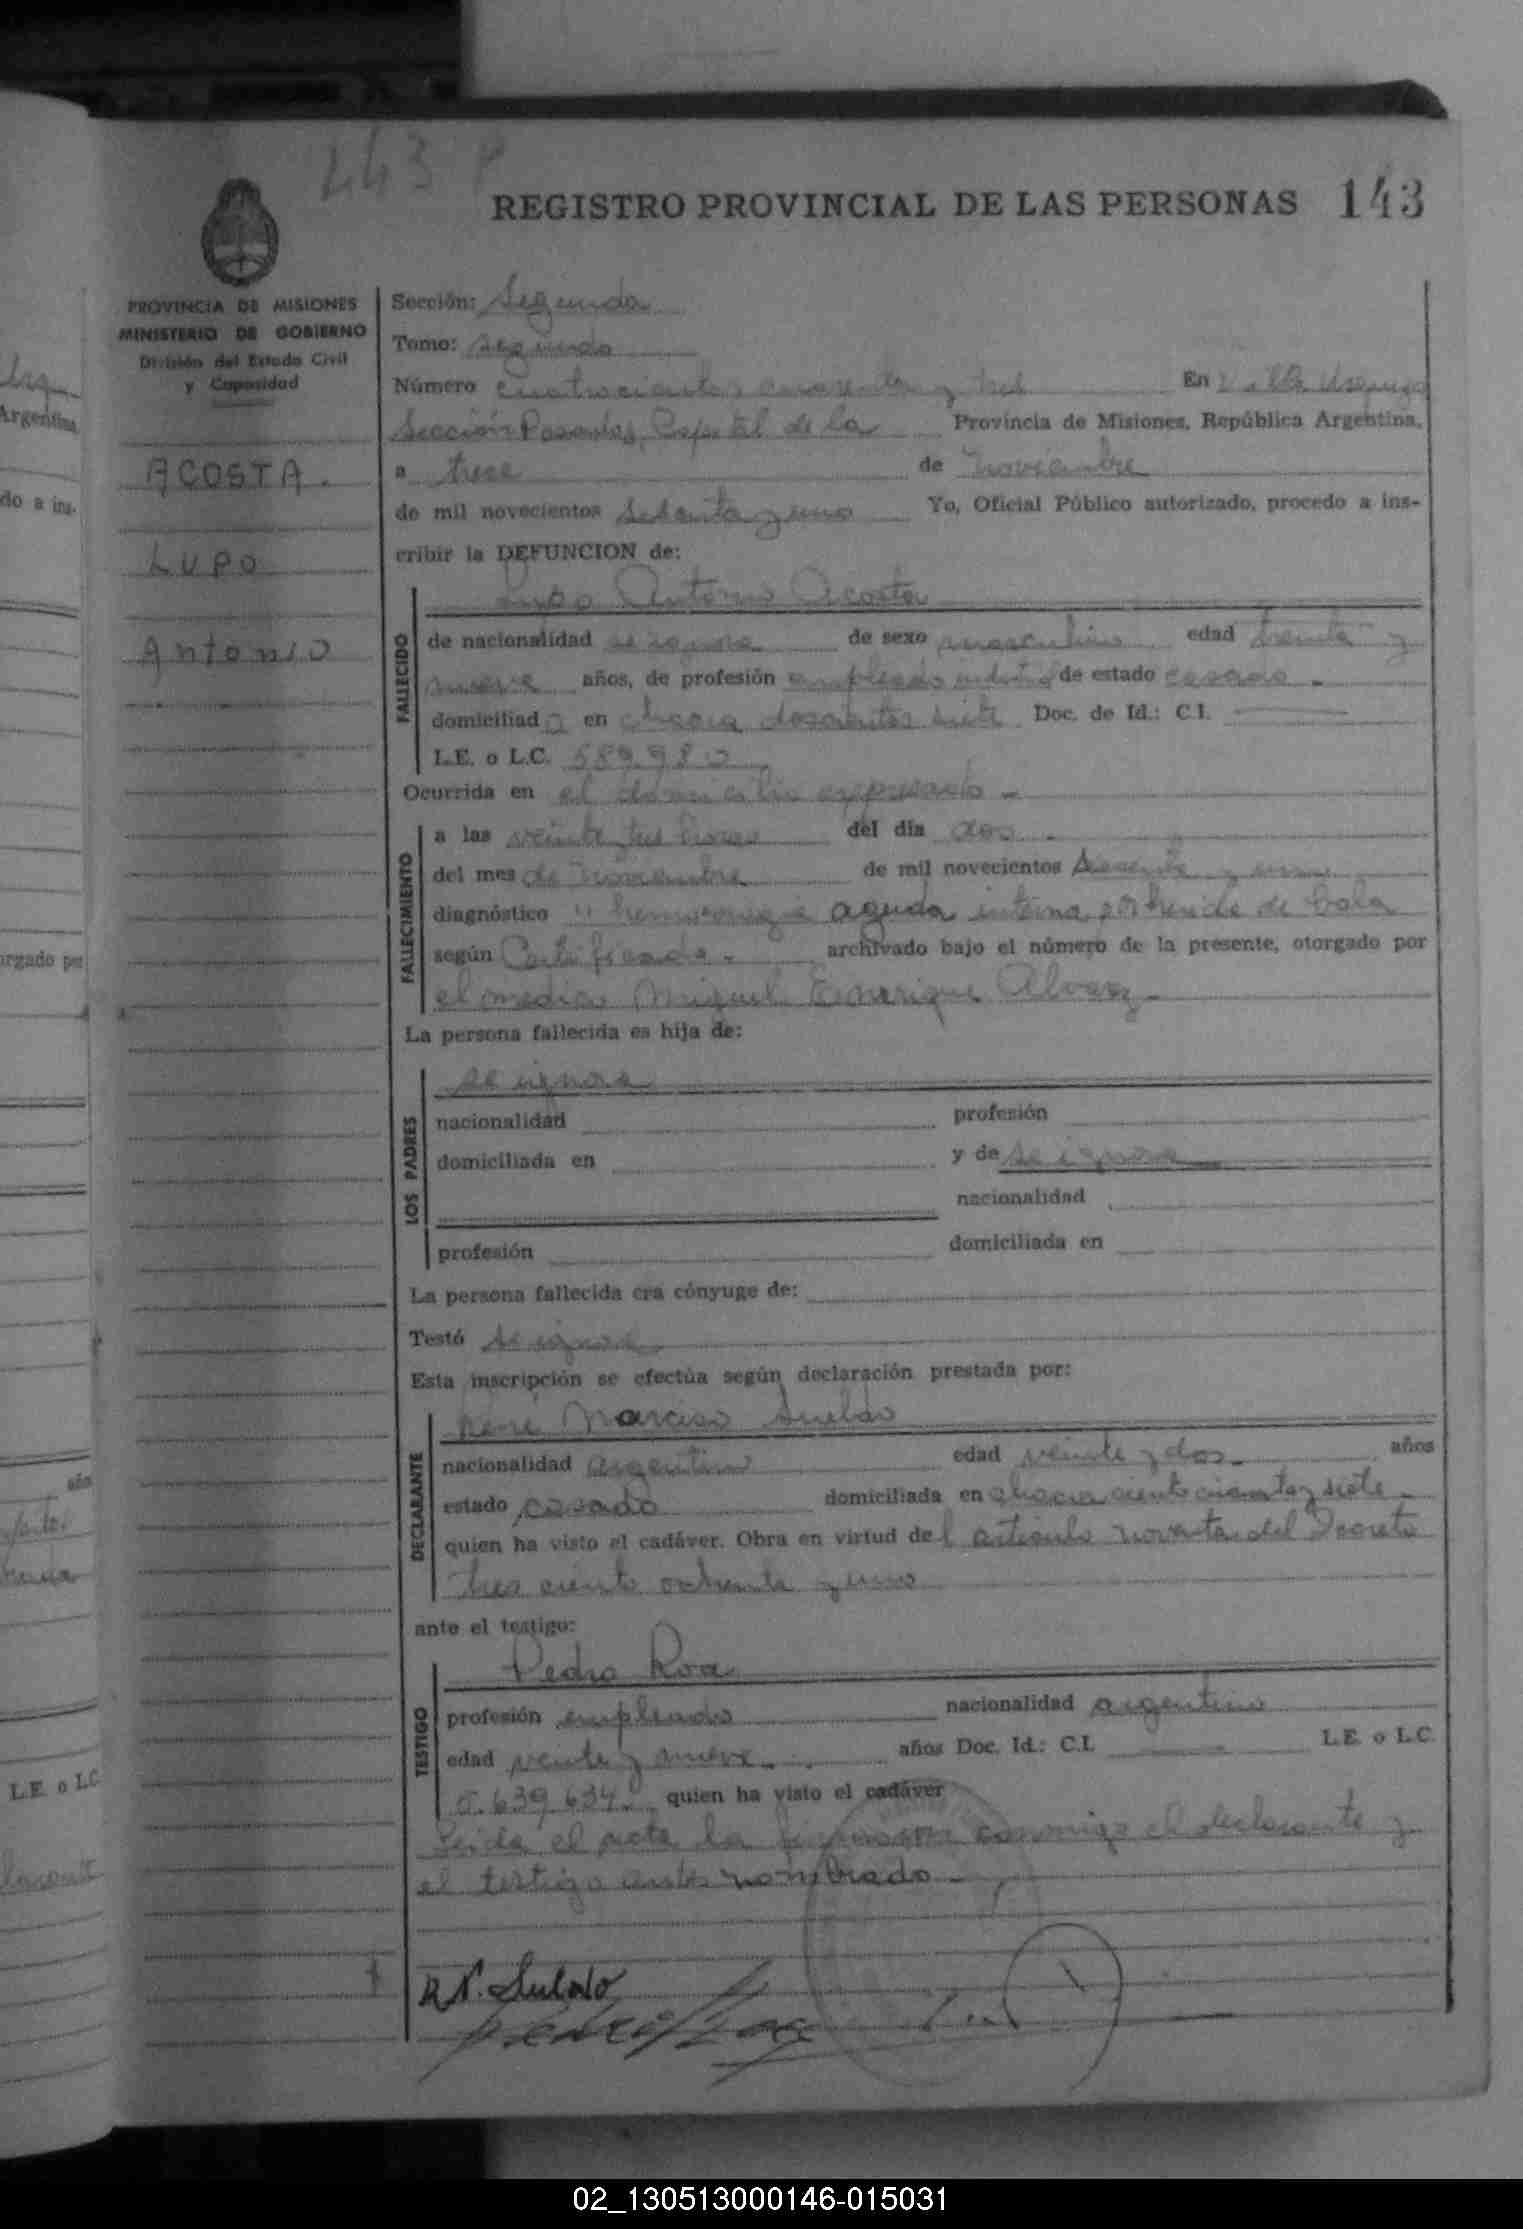 443 P
REGISTRO PROVINCIAL DE LAS PERSONAS 143
PROVINCIA DE MISIONES
MINISTERIO DE GOBIERNO
División del Estado Civil
y Capacidad
ACOSTA.
LUPO
Antonio
Sección: Segunda
Tomo: segundo
Número cuatrocientos cuarenta y tres En Villa Urquiza
Sección Posadas, Capital de la Provincia de Misiones, República Argentina,
a trece de noviembre
de mil novecientos setenta y uno Yo, Oficial Público autorizado, procedo a ins-
cribir la DEFUNCION de:
Lupo Antonio Acosta
FALLECIDO
de nacionalidad se ignora de sexo masculino edad treinta y
nueve años, de profesión empleado de estado casado
domiciliado en chacra doscientos siete Doc. de Id.: C.I.
L.E. o L.C. 589.980
Ocurrida en el domicilio expresado
FALLECIMIENTO
a las veinte tres horas del día dos
del mes de noviembre de mil novecientos setenta y uno
diagnóstico "hemorragia aguda interna por herida de bala
según Certificado archivado bajo el número de la presente, otorgado por
el medico Miguel Enrique Alvarez
La persona fallecida es hija de:
LOS PADRES
se ignora
nacionalidad profesión
domiciliada en y de se ignora
nacionalidad
profesión domiciliada en
La persona fallecida era cónyuge de:
Testó se ignora
Esta inscripción se efectúa según declaración prestada por:
DECLARANTE
René Narciso Sueldo
nacionalidad argentino edad veinte y dos años
estado casado domiciliada en chacra ciento cuarenta y siete
quien ha visto el cadáver. Obra en virtud del articulo noventa del Decreto
tres ciento ochenta y uno
ante el testigo:
TESTIGO
Pedro Roa
profesión empleado nacionalidad argentino
edad veinte y nueve años Doc. Id.: C.I. L.E. o L.C.
5.639.634 quien ha visto el cadáver
Leida el acta la firmaron conmigo el declarante y
el testigo antes nombrado
R N. Suldo
02_130513000146-015031